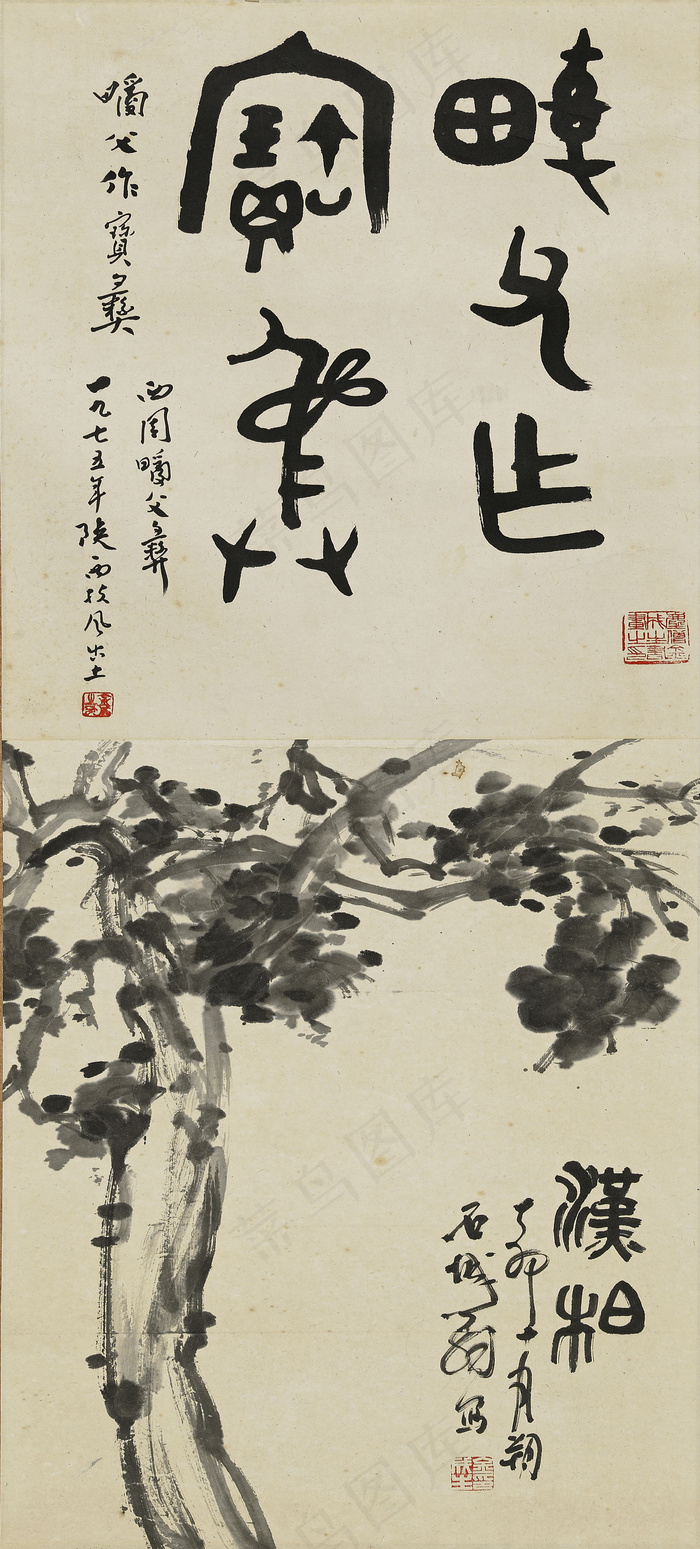 父乍
寶彝
父作寶彝
西周
父彝
一九七五年陕西扶风出土
漢柏
丁卯十月朔
石城翁写
菜鸟图库